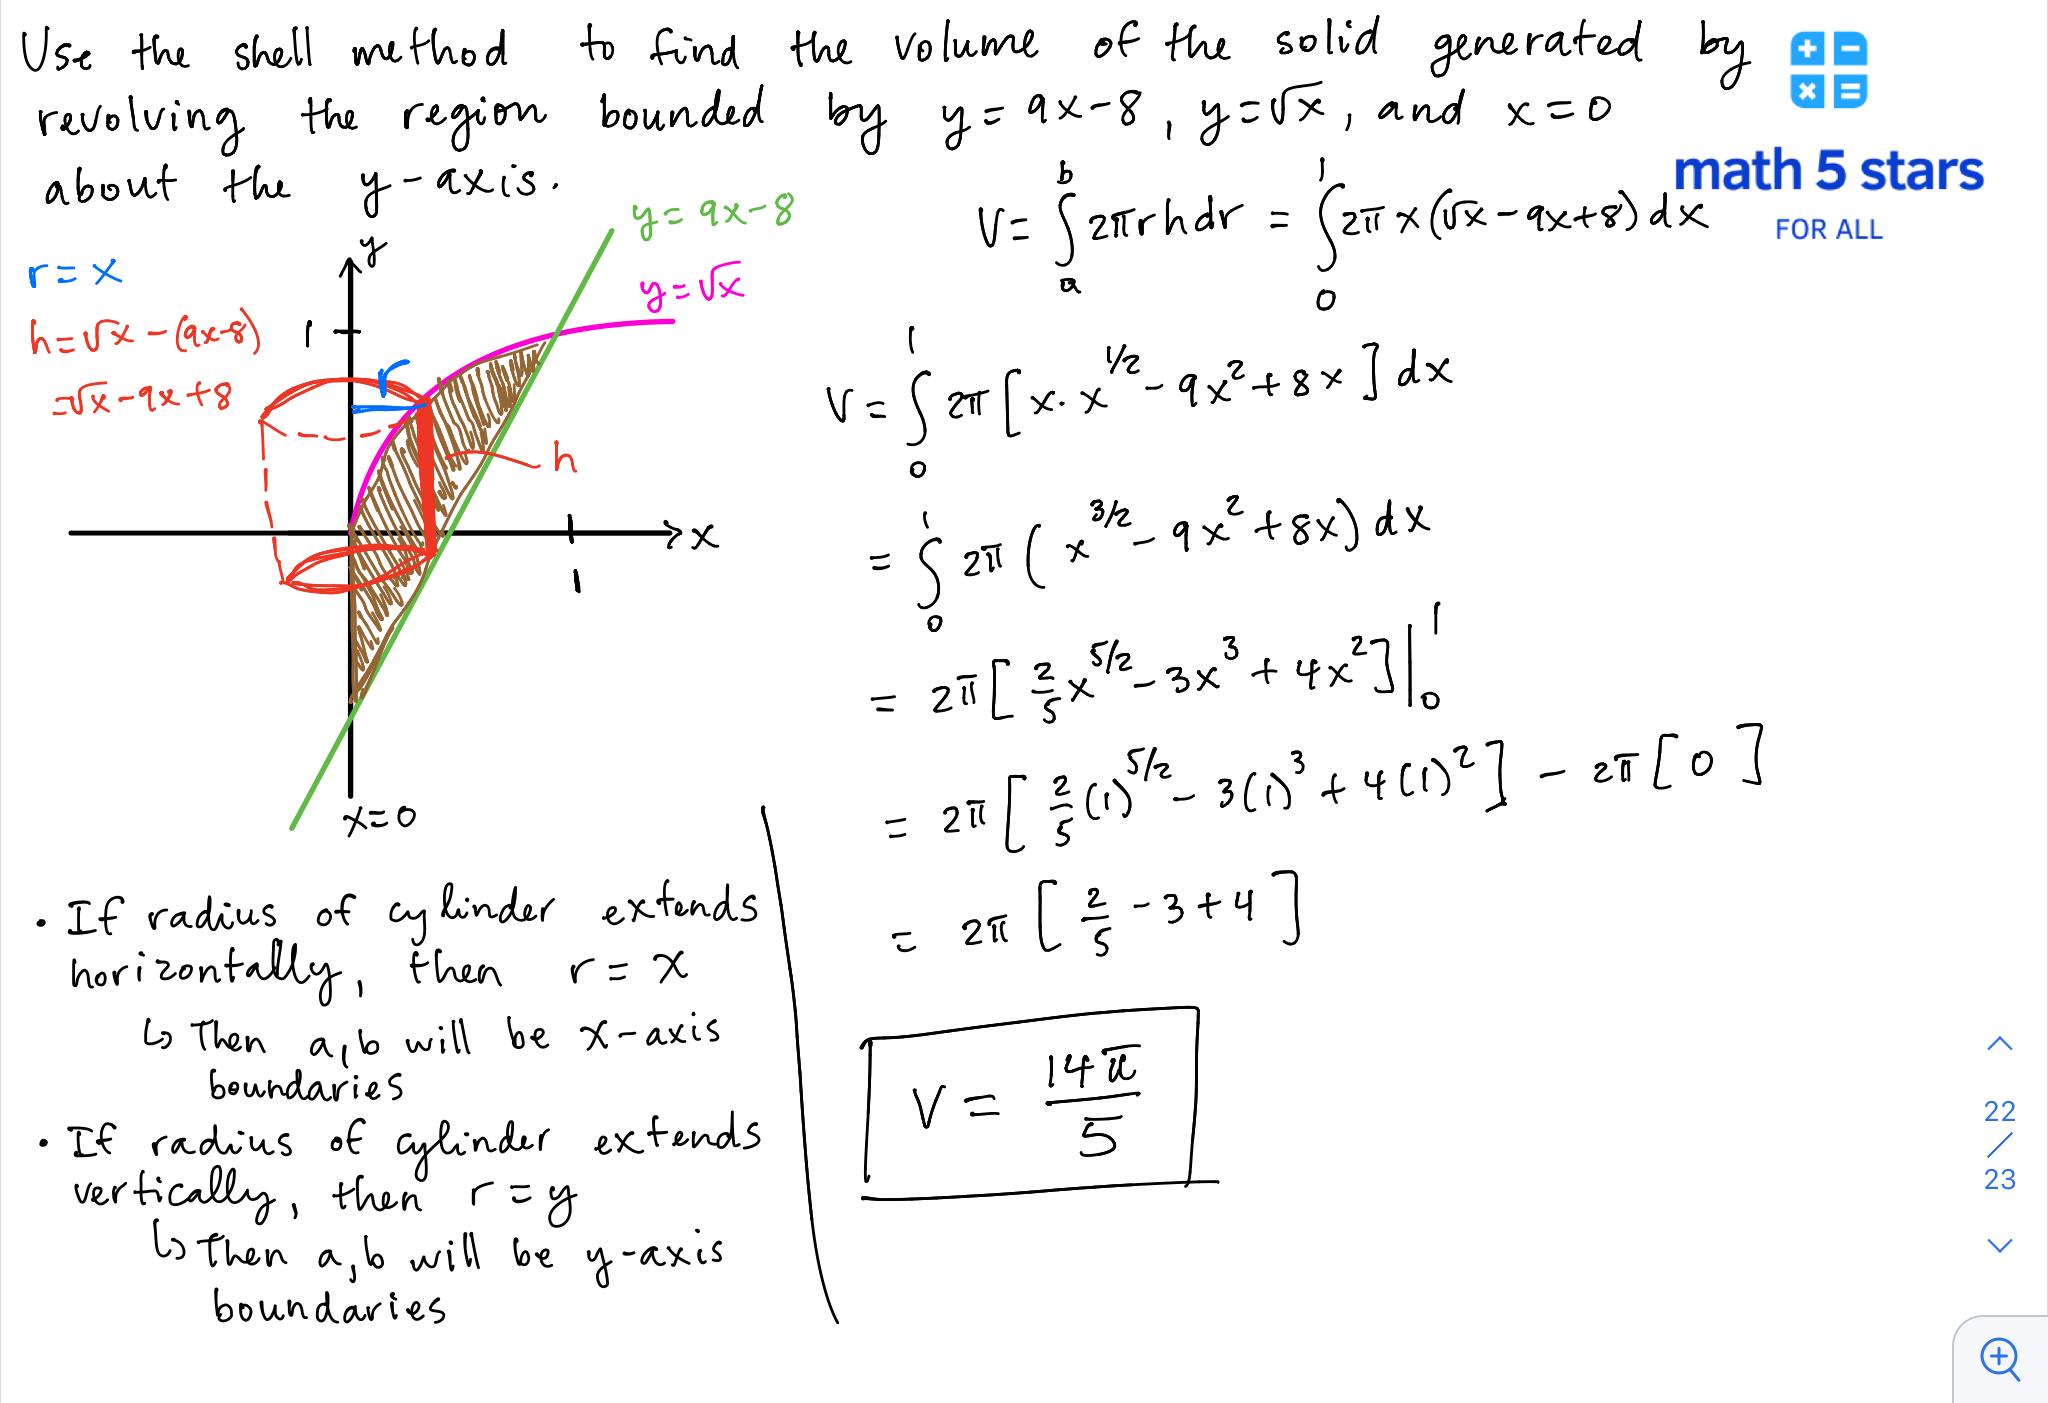 Use the shell method to find the volume of the solid generated by
revolving the region bounded by y = 9x-8, y=√x, and x=0
about the y-axis.
math 5 stars
FOR ALL
y = 9x-8
y=√x
y
r = x
h=√x - (9x-8)
=√x-9x+8
1
r
h
x
1
x=0
V = ∫_a^b 2πrhdr = ∫_0^1 2πx(√x-9x+8)dx
V = ∫_0^1 2π[x·x^{1/2}-9x^2+8x]dx
= ∫_0^1 2π(x^{3/2}-9x^2+8x)dx
= 2π[2/5 x^{5/2}-3x^3+4x^2]|_0^1
= 2π[2/5 (1)^{5/2}-3(1)^3+4(1)^2] - 2π[0]
= 2π[2/5 -3+4]
V = 14π/5
• If radius of cylinder extends
horizontally, then r = x
↳ Then a,b will be x-axis
boundaries
• If radius of cylinder extends
vertically, then r = y
↳ Then a,b will be y-axis
boundaries
22
/
23